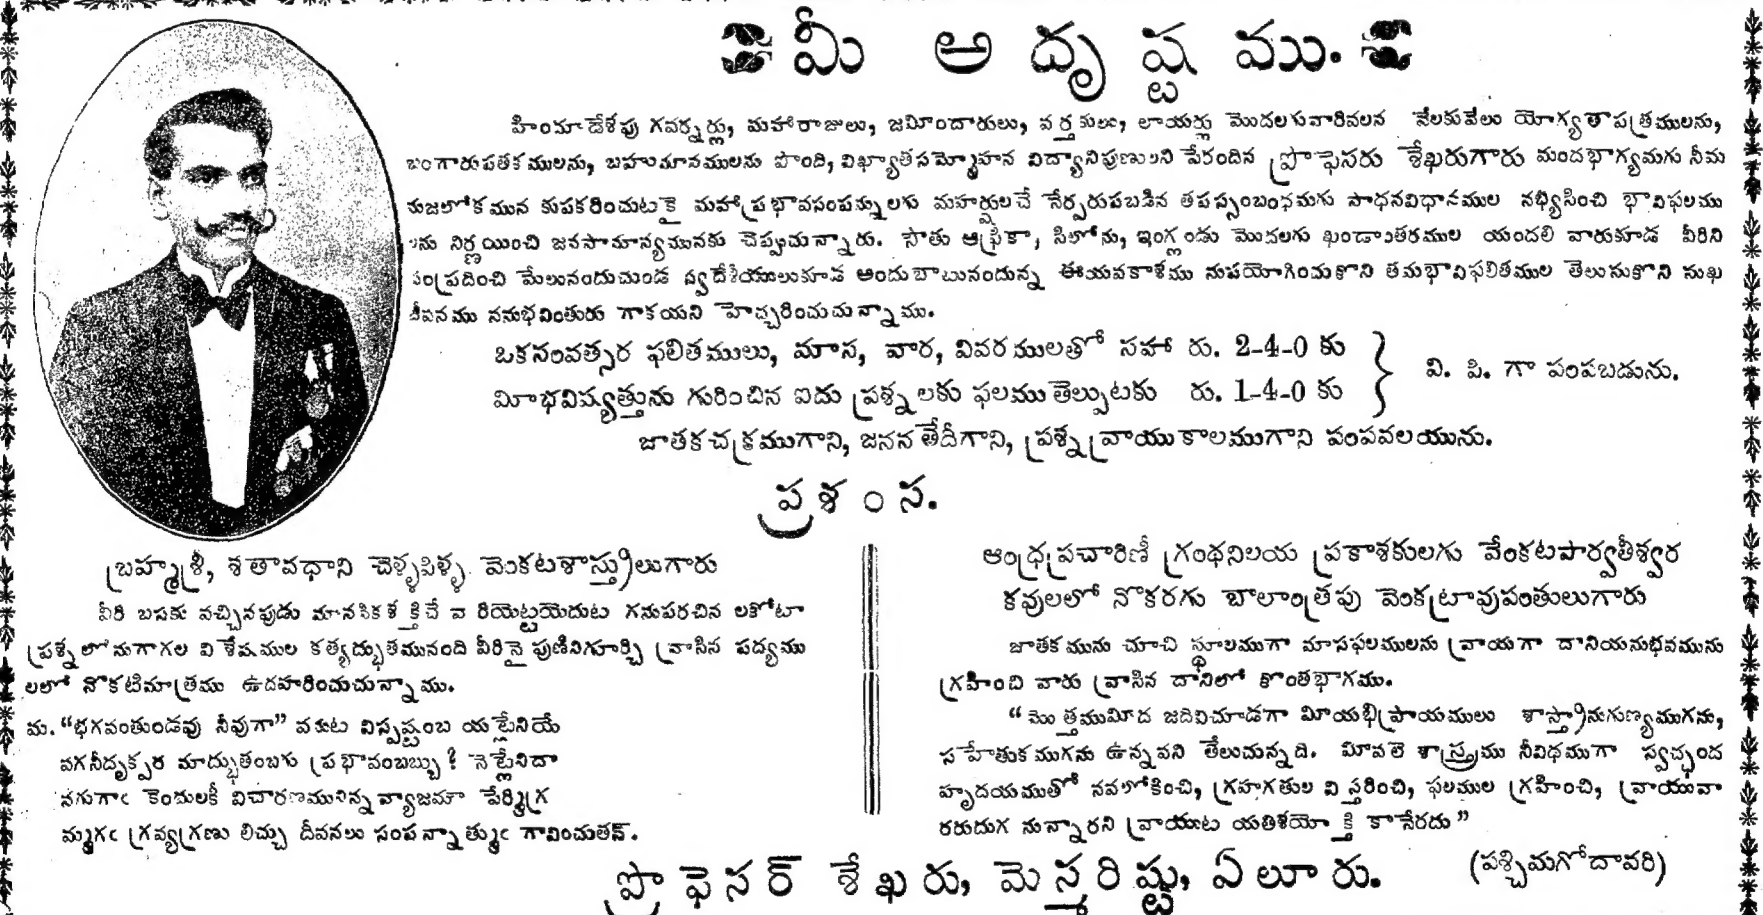 మీ అదృష్టము.
హిందూదేశపు గవర్నర్లు, మహారాజులు, జమీందారులు, వర్తకులు, లాయర్లు మొదలగువారివలన వేలకువేలు యోగ్యతాపత్రములను,
బంగారుపతకములను, బహుమానములను పొంది, విఖ్యాతసమ్మోహన విద్యానిపుణులని పేరందిన ప్రొఫెసరు శేఖరుగారు మందభాగ్యమగు నీమ
నుజలోకమున కుపకరించుటకై మహాప్రభావసంపన్నులగు మహర్షులచే నేర్పరుపబడిన తపస్సంబంధమగు సాధనవిధానముల నభ్యసించి భావిఫలము
లను నిర్ణయించి జనసామాన్యమునకు చెప్పుచున్నారు. సౌతు ఆఫ్రికా, సిలోను, ఇంగ్లండు మొదలగు ఖండాంతరముల యందలి వారుకూడ వీరిని
సంప్రదించి మేలునందుచుండ స్వదేశీయులుకూడ అందుబాటునందున్న ఈయవకాశము నుపయోగించుకొని తమభావిఫలితముల తెలుసుకొని సుఖ
జీవనము ననుభవింతురు గాకయని హెచ్చరించుచున్నాము.
ఒకసంవత్సర ఫలితములు, మాస, వార, వివరములతో సహా రు. 2-4-0 కు
మీభవిష్యత్తును గురించిన ఐదు ప్రశ్నలకు ఫలముతెల్పుటకు రు. 1-4-0 కు
వి. పి. గా పంపబడును.
జాతకచక్రముగాని, జనన తేదీగాని, ప్రశ్నవ్రాయుకాలముగాని పంపవలయును.
ప్రశంస.
బ్రహ్మశ్రీ, శతావధాని చెళ్ళపిళ్ళ వెంకటశాస్త్రులుగారు
వీరి బసకు వచ్చినపుడు మానసికశక్తిచే వారియెట్టయెదుట గనుపరచిన లకోటా
ప్రశ్నలోనుగాగల విశేషముల కత్యద్భుతమునంది వీరినైపుణినిగూర్చి వ్రాసిన పద్యము
లలో నొకటిమాత్రము ఉదహరించుచున్నాము.
మ. “భగవంతుండవు నీవుగా” వకుట విస్పష్టంబ యట్లేనియే
వగనీదృక్పర మాద్భుతంబగు ప్రభావంబబ్బు? నెట్లేనిదా
నగుగాఁ కెందులకీ విచారణమునిన్నవ్యాజమౌ పేర్మిగ్ర
మ్మగఁ గ్రవ్యగ్రణు లిచ్చు దీవనలు సంపన్నాత్ముఁ గావించుతన్.
ఆంధ్రప్రచారిణీ గ్రంథనిలయ ప్రకాశకులగు వేంకటపార్వతీశ్వర
కవులలో నొకరగు బాలాంత్రపు వెంకట్రావుపంతులుగారు
జాతకమును చూచి స్థూలముగా మాసఫలములను వ్రాయగా దానియనుభవమును
గ్రహించి వారు వ్రాసిన దానిలో కొంతభాగము.
“మొత్తముమీద జదివిచూడగా మీయభిప్రాయములు శాస్త్రానుగుణ్యముగను,
సహేతుకముగను ఉన్నవని తేలుచున్నది. మీవలె శాస్త్రము నీవిధముగా స్వచ్ఛంద
హృదయముతో నవలోకించి, గ్రహగతుల విస్తరించి, ఫలముల గ్రహించి, వ్రాయువా
రరుదుగ నున్నారని వ్రాయుట యతిశయోక్తి కానేరదు”
ప్రొఫెసర్ శేఖరు, మెస్మరిష్టు, ఏలూరు.
(పశ్చిమగోదావరి)